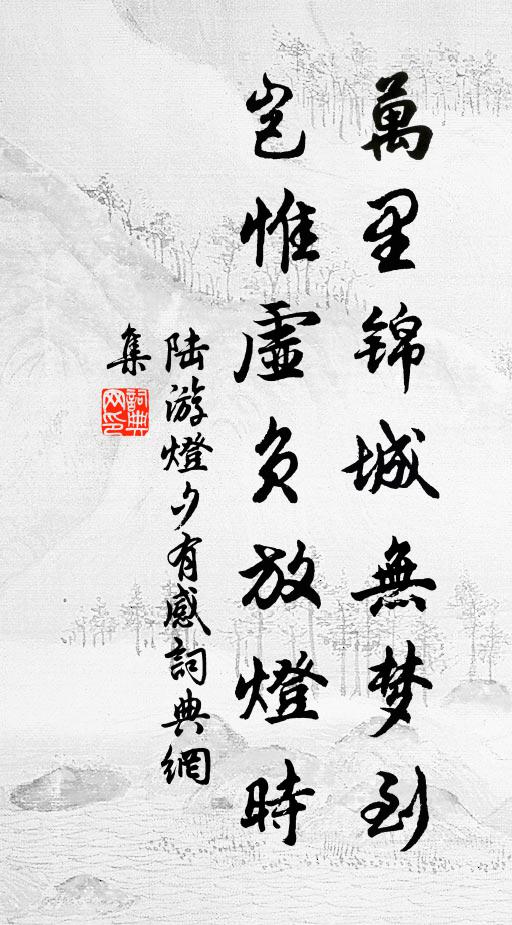 萬里锦城無梦到
岂惟虛負放燈時
陆游燈夕有感詞典網
集
詞典
网印